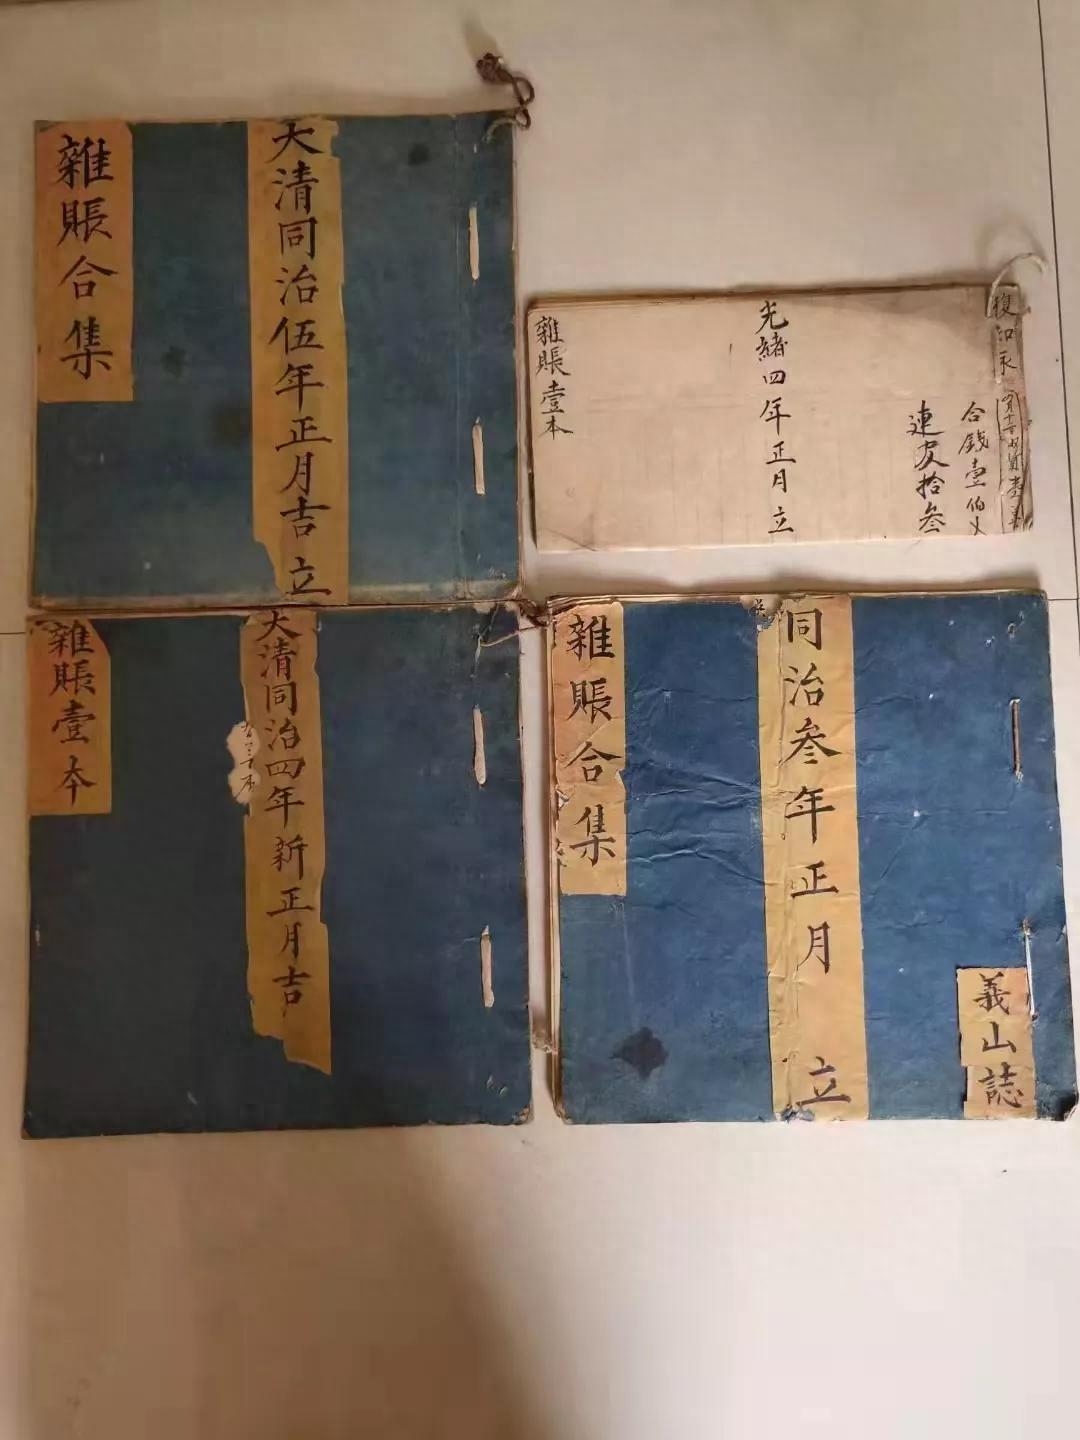 大清同治伍年正月吉立
雜賬合集
光緒四年正月立
雜賬壹本
連皮拾叁
合錢壹伯
大清同治四年新正月吉
雜賬壹本
同治叁年正月立
雜賬合集
義山誌